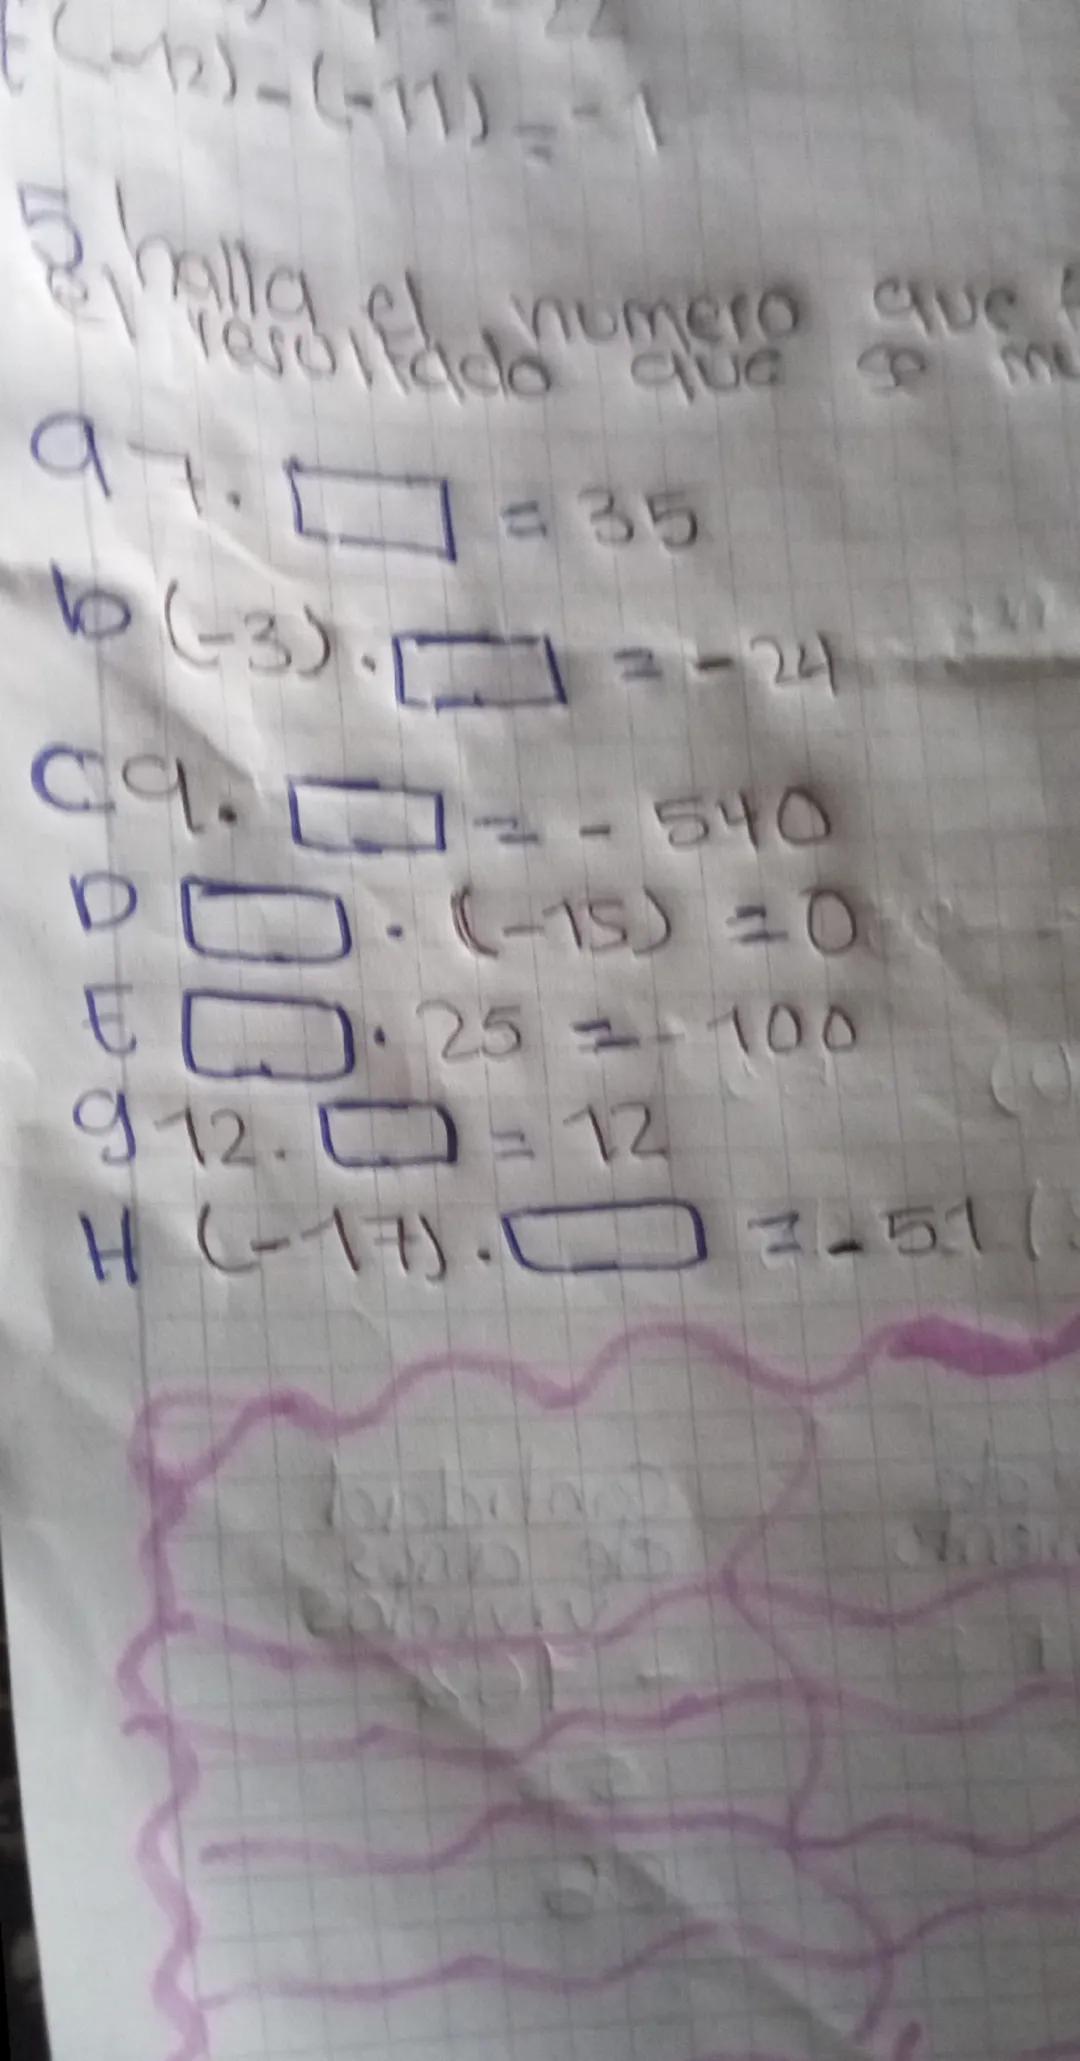 (-12)-(-11)=-1
5 halla el numero que
resultado que se
a 7. = 35
b (-3). = -24
C 9. = - 540
D . (-15) = 0
E . 25 = - 100
g 12. = 12
H (-17). = -51